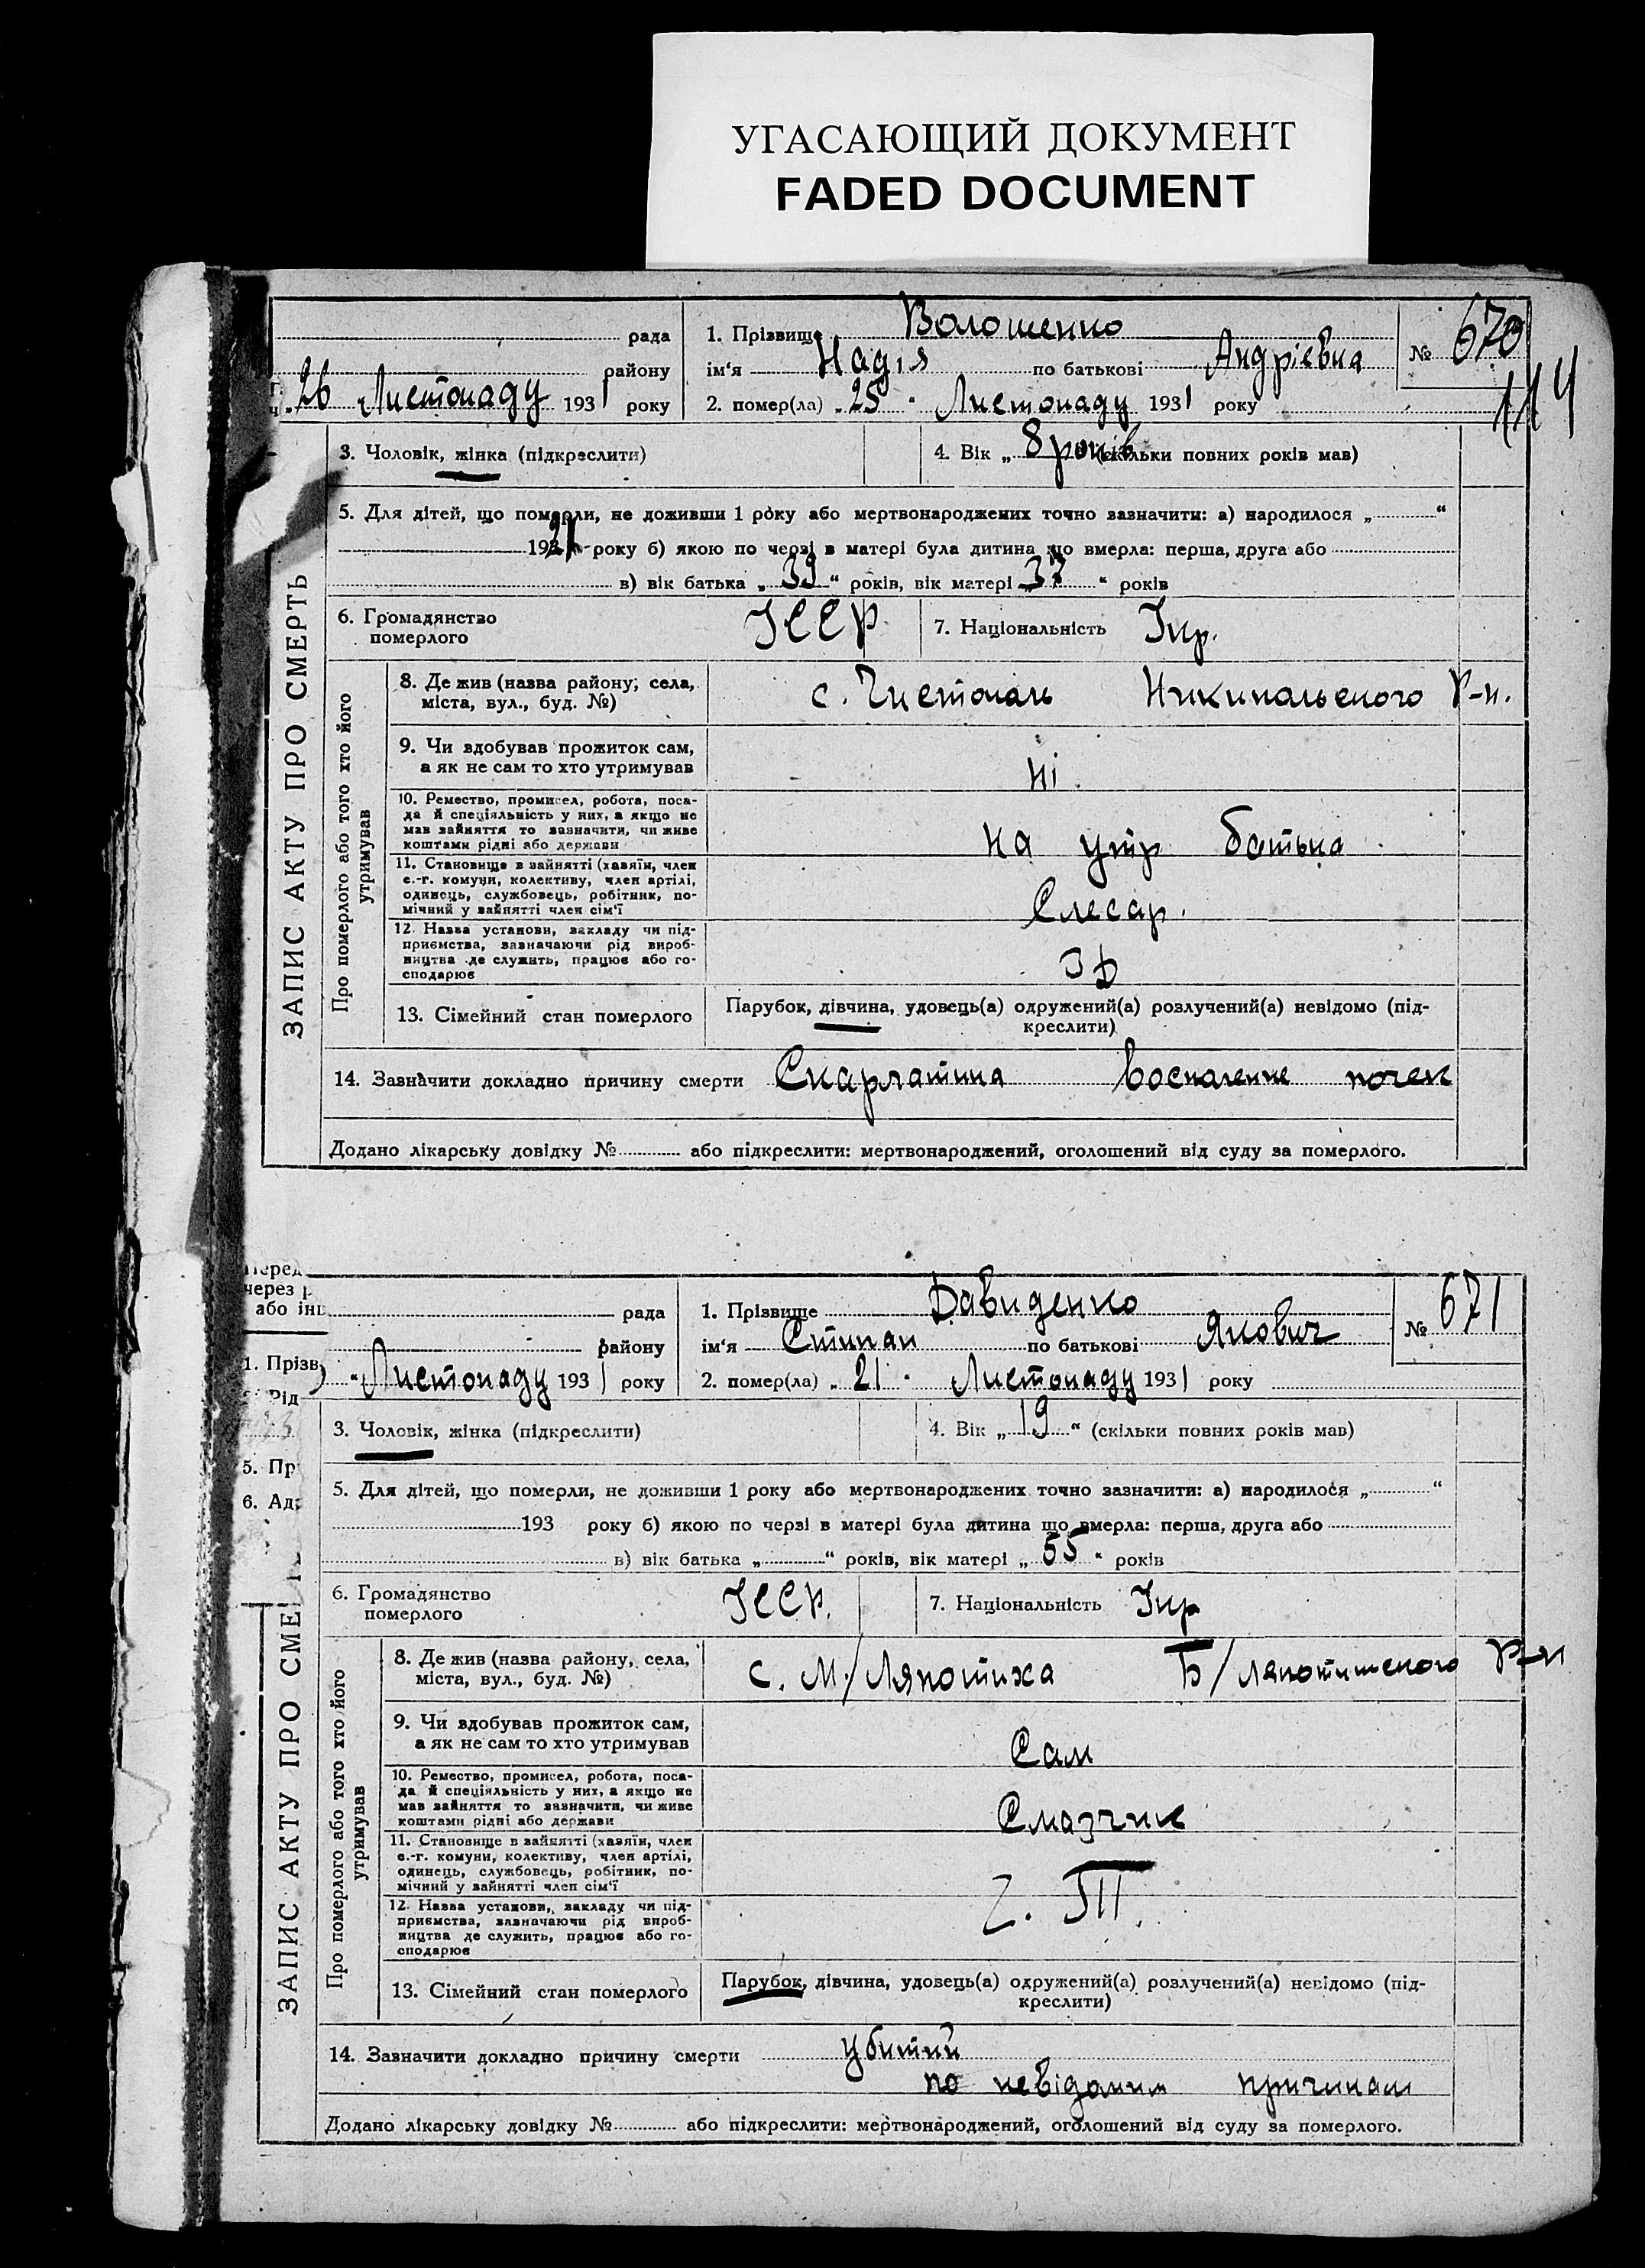 УГАСАЮЩИЙ ДОКУМЕНТ
FADED DOCUMENT
рада
району
26 Листопаду 1931 року
1. Прізвище Волошенко
ім'я Надія по батькові Андріевна
2. помер(ла) „25" Листопаду 1931 року
№ 670
114
3. Чоловік, жінка (підкреслити)
4. Вік „8 років (скільки повних років мав)
5. Для дітей, що померли, не доживши 1 року або мертвонароджених точно зазначити: а) народилося „ “
193 року б) якою по черзі в матері була дитина що вмерла: перша, друга або
в) вік батька „39“ років, вік матері „37“ років
6. Громадянство
померлого
УССР
7. Національність Укр.
ЗАПИС АКТУ ПРО СМЕРТЬ
Про померлого або того хто його
утримував
8. Де жив (назва району, села,
міста, вул., буд. №)
с. Чистополь Никипольского Р-н.
9. Чи здобував прожиток сам,
а як не сам то хто утримував
Ні
10. Ремество, промисел, робота, поса-
да й спеціяльність у них, а якщо не
мав зайняття то зазначити, чи живе
коштами рідні або держави
На утр батька
11. Становище в зайнятті (хазяїн, член
с.-г. комуни, колективу, член артілі,
одинець, службовець, робітник, по-
мічний у зайнятті член сім'ї
Слесар.
12. Назва установи, закладу чи під-
приємства, зазначаючи рід вироб-
ництва де служить, працює або го-
сподарює
13. Сімейний стан померлого
Парубок, дівчина, удовець(а) одружений(а) розлучений(а) невідомо (під-
креслити)
14. Зазначити докладно причину смерти Скарлатина Воспаление почек
Додано лікарську довідку № або підкреслити: мертвонароджений, оголошений від суду за померлого.
Перед
через р
або інш
1. Прізв
Рід
5. Пр
6. Ад
рада
району
Листопаду 1931 року
1. Прізвище Давиденко
ім'я Стипан по батькові Якович
2. помер(ла) „21" Листопаду 1931 року
№ 671
3. Чоловік, жінка (підкреслити)
4. Вік „19“ (скільки повних років мав)
5. Для дітей, що померли, не доживши 1 року або мертвонароджених точно зазначити: а) народилося „ “
193 року б) якою по черзі в матері була дитина що вмерла: перша, друга або
в) вік батька „ “ років, вік матері „55“ років
6. Громадянство
померлого
УССР.
7. Національність Укр
ЗАПИС АКТУ ПРО СМЕ
Про померлого або того хто його
утримував
8. Де жив (назва району, села,
міста, вул., буд. №)
с. М/Ляпотиха Б/Ляпотишского Р-н
9. Чи здобував прожиток сам,
а як не сам то хто утримував
Сам
10. Ремество, промисел, робота, поса-
да й спеціяльність у них, а якщо не
мав зайняття то зазначити, чи живе
коштами рідні або держави
Смазчик
11. Становище в зайнятті (хазяїн, член
с.-г. комуни, колективу, член артілі,
одинець, службовець, робітник, по-
мічний у зайнятті член сім'ї
12. Назва установи, закладу чи під-
приємства, зазначаючи рід вироб-
ництва де служить, працює або го-
сподарює
13. Сімейний стан померлого
Парубок, дівчина, удовець(а) одружений(а) розлучений(а) невідомо (під-
креслити)
14. Зазначити докладно причину смерти убитий
по невідомим причинам
Додано лікарську довідку № або підкреслити: мертвонароджений, оголошений від суду за померлого.